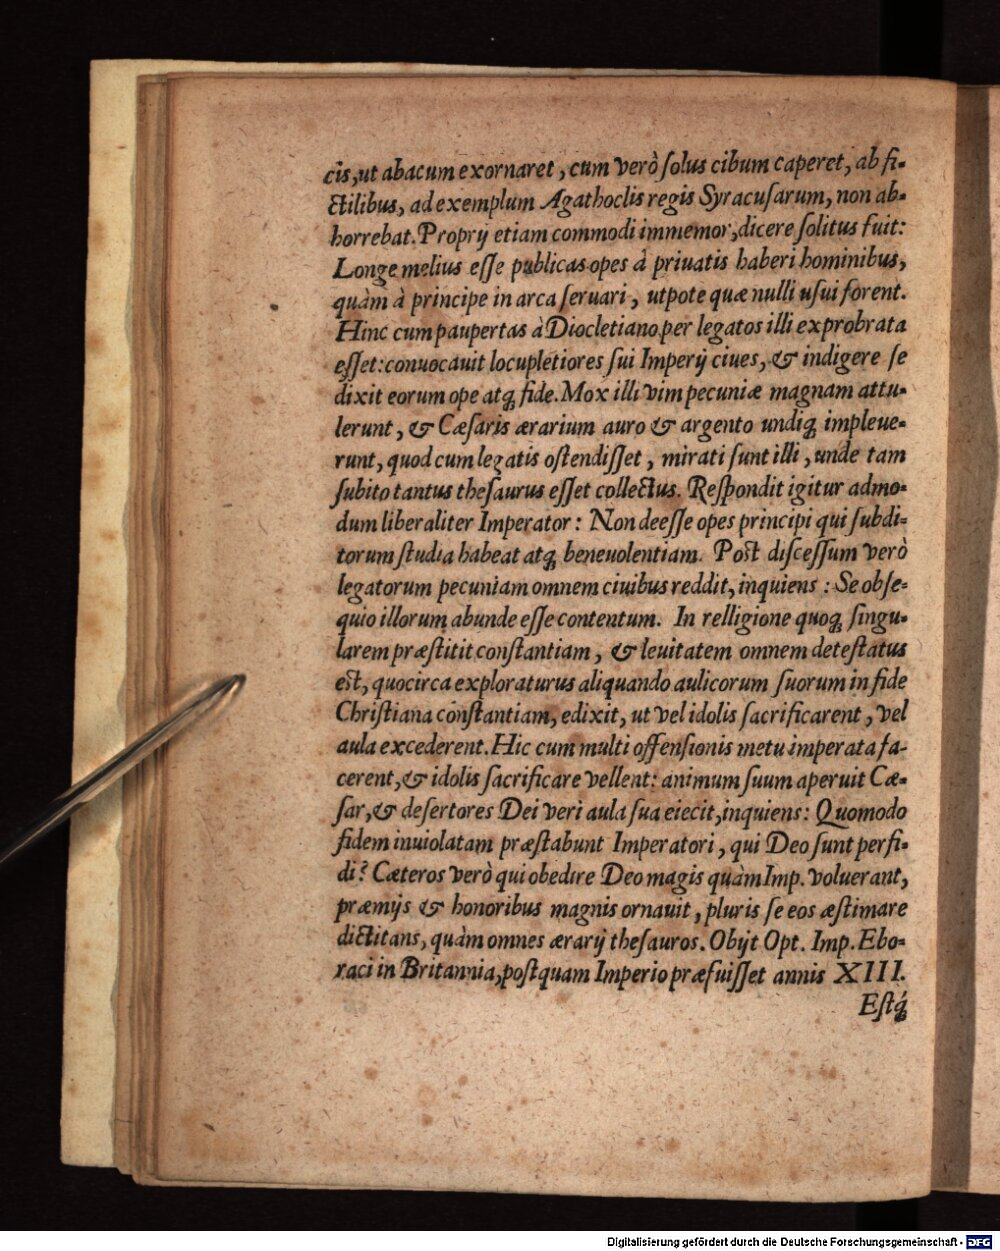 cis, ut abacum exornaret, cum verò ſolus cibum caperet, ab fi-
ctilibus, ad exemplum Agathoclis regis Syracuſarum, non ab-
horrebat. Proprij etiam commodi immemor, dicere ſolitus fuit:
Longe melius eſſe publicas opes à priuatis haberi hominibus,
quàm à principe in arca ſeruari, utpote quæ nulli uſui forent.
Hinc cum paupertas à Diocletiano per legatos illi exprobrata
eſſet: conuocauit locupletiores ſui Imperij ciues, & indigere ſe
dixit eorum ope atq; fide. Mox illi vim pecuniæ magnam attu-
lerunt, & Cæſaris ærarium auro & argento undiq; impleue-
runt, quod cum legatis oſtendiſſet, mirati ſunt illi, unde tam
ſubito tantus theſaurus eſſet collectus. Reſpondit igitur admo-
dum liberaliter Imperator: Non deeſſe opes principi qui ſubdi-
torum ſtudia habeat atq; beneuolentiam. Poſt diſceſſum verò
legatorum pecuniam omnem ciuibus reddit, inquiens: Se obſe-
quio illorum abunde eſſe contentum. In relligione quoq; ſingu-
larem præſtitit conſtantiam, & leuitatem omnem deteſtatus
eſt, quocirca exploraturus aliquando aulicorum ſuorum in fide
Chriſtiana conſtantiam, edixit, ut vel idolis ſacrificarent, vel
aula excederent. Hic cum multi offenſionis metu imperata fa-
cerent, & idolis ſacrificare vellent: animum ſuum aperuit Cæ-
ſar, & deſertores Dei veri aula ſua eiecit, inquiens: Quomodo
fidem inuiolatam præſtabunt Imperatori, qui Deo ſunt perfi-
di? Cæteros verò qui obedire Deo magis quàm Imp. voluerant,
præmijs & honoribus magnis ornauit, pluris ſe eos æſtimare
dictitans, quàm omnes ærarij theſauros. Obijt Opt. Imp. Ebo-
raci in Britannia, poſtquam Imperio præfuiſſet annis XIII.
Eſtq́;
Digitalisierung gefördert durch die Deutsche Forschungsgemeinschaft - DFG